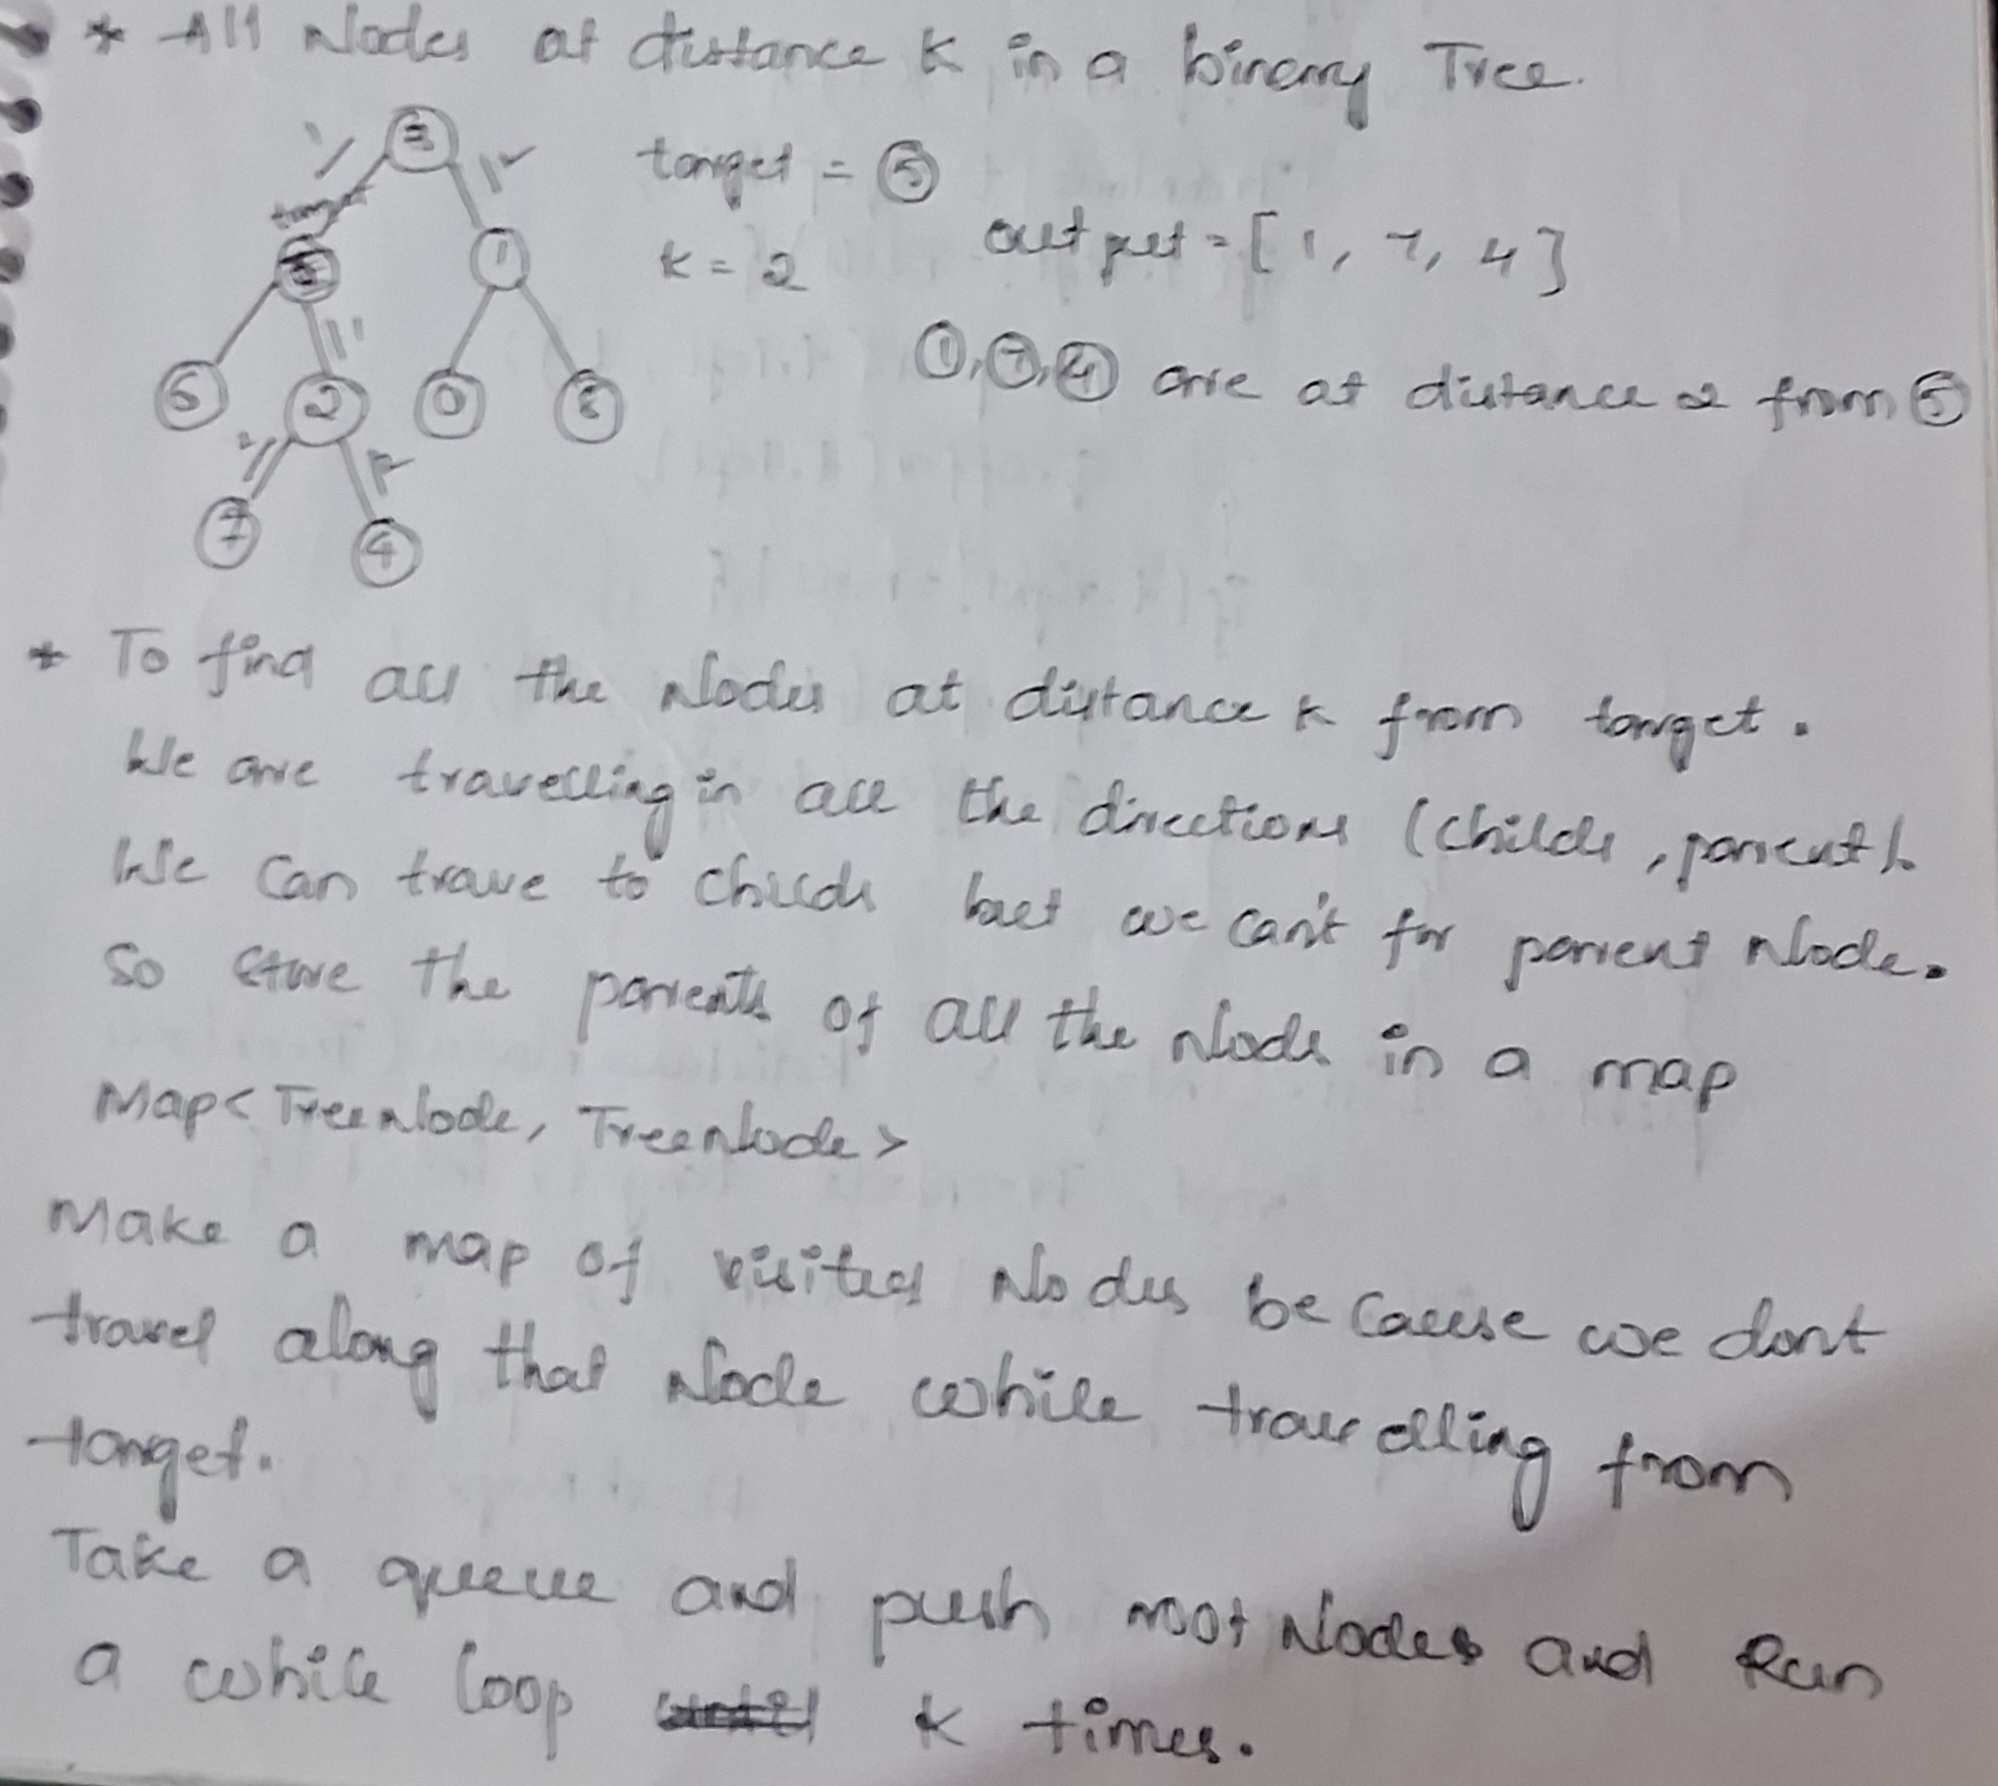 * All Nodes at distance K in a binary Tree.
3
target = 5
target
k = 2
output = [1, 7, 4]
5 1
1, 7, 4 are at distance 2 from 5
6 2 0 8
7 4
* To find all the Nodes at distance k from target.
We are travelling in all the directions (childs, parent).
We can trave to childs but we can't for parent Node.
So store the parents of all the Nods in a map
Map<TreeNode, TreeNode>
Make a map of visited Nodes because we dont
travel along that Node while travelling from
target.
Take a queue and push root Nodes and Run
a while loop k times.